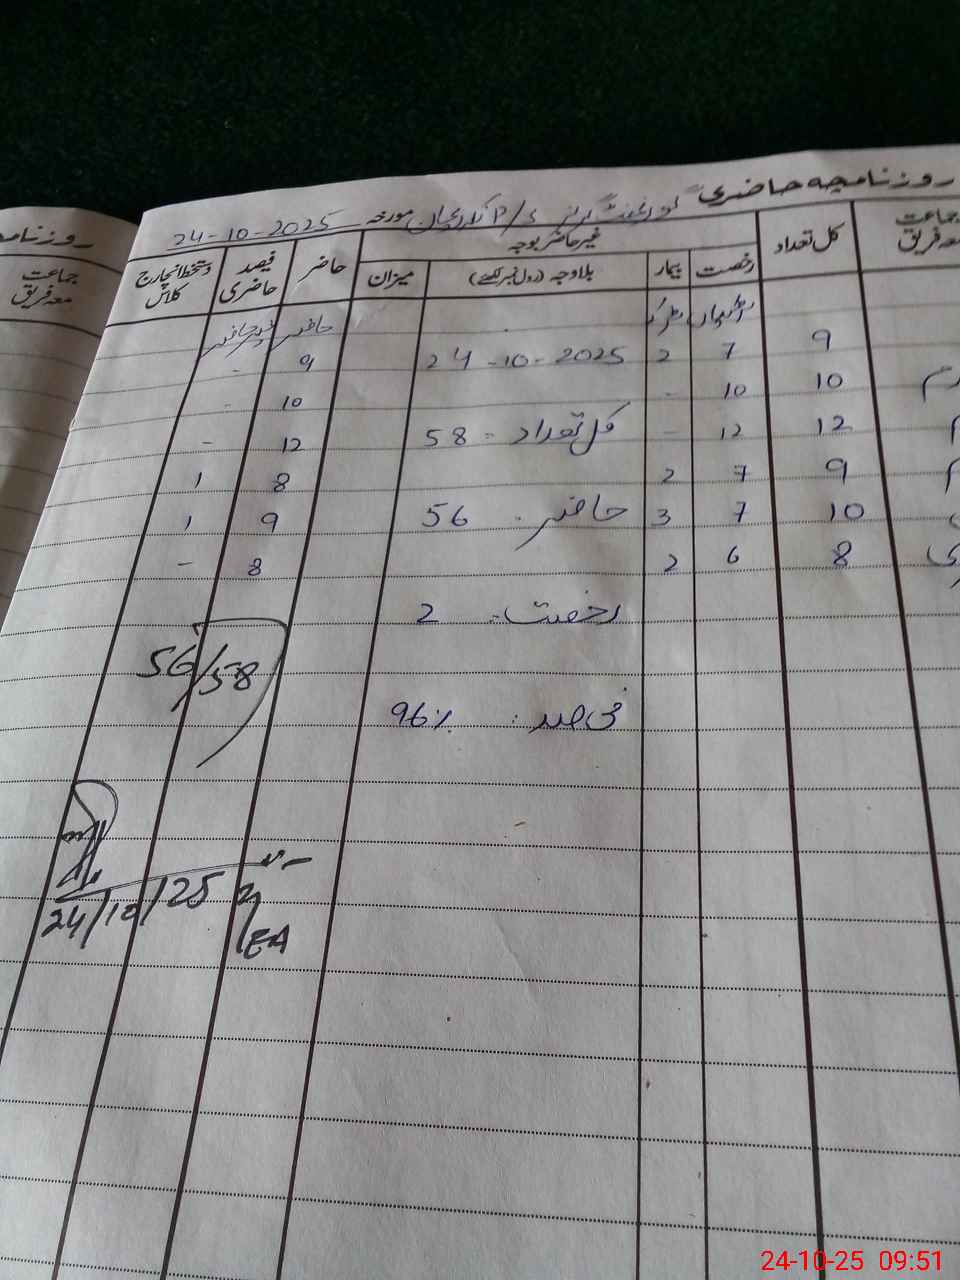 روزنامچہ حاضری گورنمنٹ گرلز P/S مورخہ 24-10-2025
جماعت معہ فریق کل تعداد غیر حاضر بوجہ حاضر فیصد حاضری دستخط انچارج کلاس
رخصت بیمار بلاوجہ (رول نمبر لکھئے) میزان
لڑکیاں لڑکے حاضر غیر حاضر
9 7 2 24-10-2025 9 -
10 10 - 10 -
12 12 - کل تعداد = 58 12 -
9 7 2 8 1
10 7 3 حاضر . 56 9 1
8 6 2 8 -
رخصت = 2
56/58
فی صد : 96%
24/10/25
EA
روزنامچہ
جماعت
معہ فریق
24-10-25 09:51